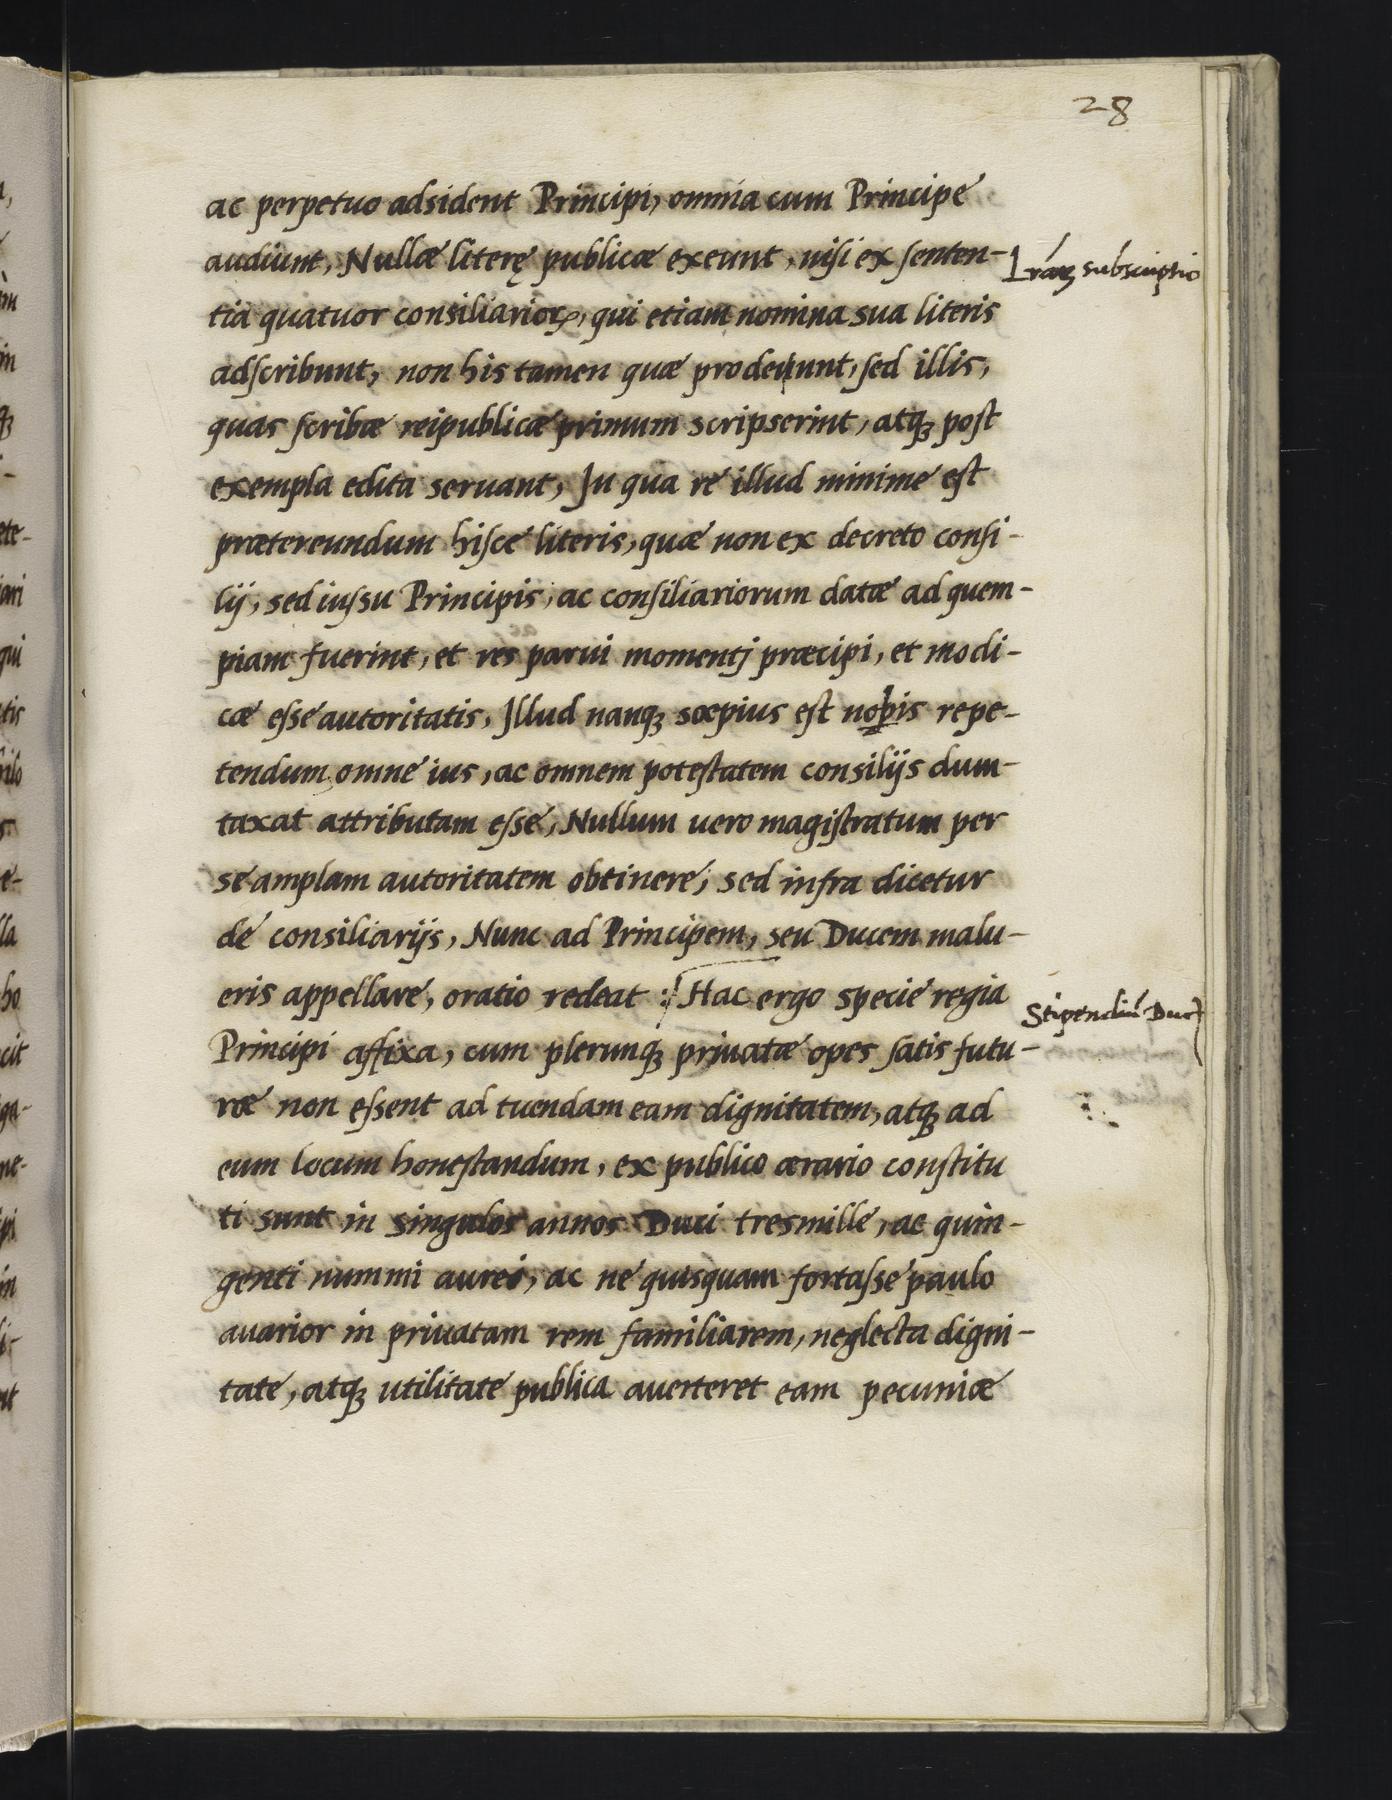 28
ac perpetuo adsident Principi, omnia cum Principe
audiunt, Nullæ literę publicæ exeunt, nisi ex senten-
Lrāꝝ subscriptio
tia quatuor consiliarioꝝ, qui etiam nomina sua literis
adscribunt, non his tamen quæ prodeunt, sed illis,
quas scribæ reipublicæ primum scripserint, atqꝫ post
exempla edita seruant, In qua re illud minime est
prætereundum hisce literis, quæ non ex decreto consi-
lij, sed iussu Principis, ac consiliariorum datæ ad quem-
piam fuerint, et res parui momentj præcipi, et modi-
cæ esse autoritatis, Illud nanqꝫ sæpius est nobis repe-
tendum omne ius, ac omnem potestatem consilijs dum-
taxat attributam esse, Nullum uero magistratum per
se amplam autoritatem obtinere, sed infra dicetur
de consiliarijs, Nunc ad Principem, seu Ducem malu-
eris appellare, oratio redeat : Hac ergo specie regia
Stipendiū Ducj
Principi affixa, cum plerunqꝫ priuatæ opes satis futu-
ræ non essent ad tuendam eam dignitatem, atqꝫ ad
eum locum honestandum, ex publico ærario constitu
ti sunt in singulos annos Duci tresmille, ac quin-
genti nummi aurei, ac ne quisquam fortasse paulo
auarior in priuatam rem familiarem, neglecta digni-
tate, atqꝫ utilitate publica auerteret eam pecuniæ